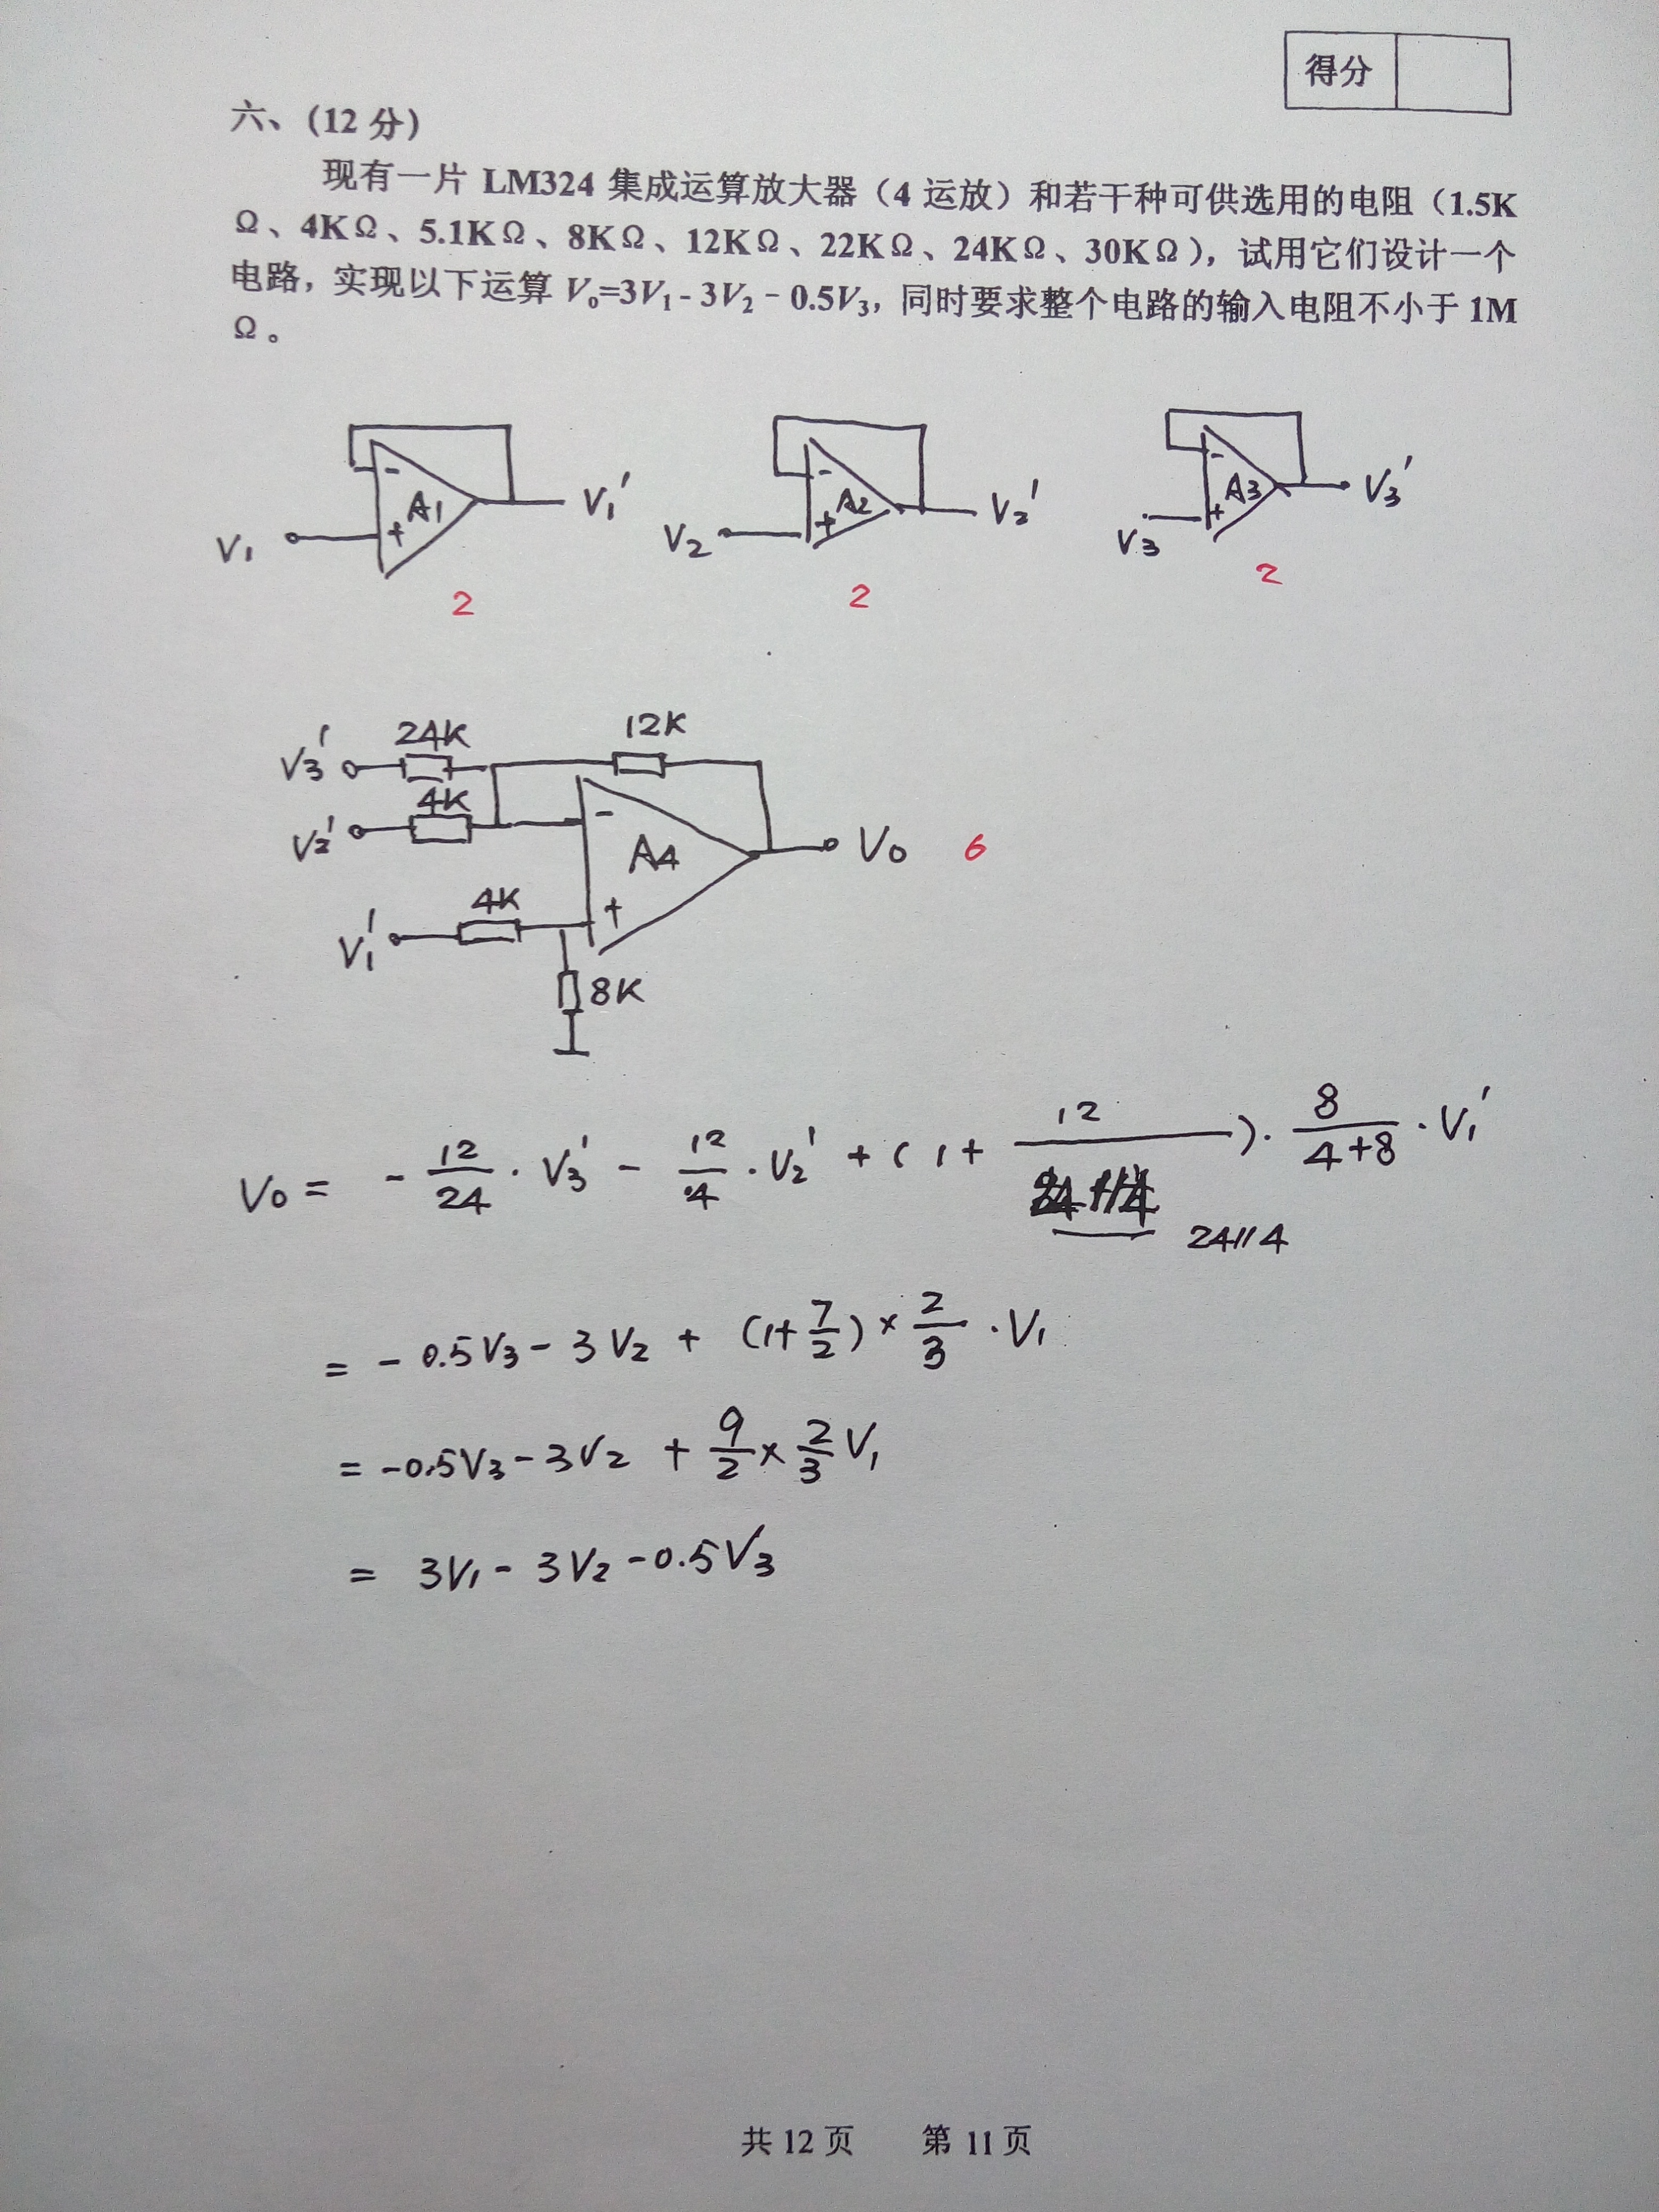 得分
六、（12 分）
现有一片 LM324 集成运算放大器（4 运放）和若干种可供选用的电阻（1.5K
Ω、4KΩ、5.1KΩ、8KΩ、12KΩ、22KΩ、24KΩ、30KΩ），试用它们设计一个
电路，实现以下运算 Vo=3V1 - 3V2 - 0.5V3，同时要求整个电路的输入电阻不小于 1M
Ω。
V1 - A1 + V1'
V2 - A2 + V2'
V3 - A3 + V3'
2 2 2
24K 12K
V3'
4K
V2' - A4 Vo 6
4K +
V1'
8K
Vo = - 12/24 · V3' - 12/4 · V2' + (1 + 12/ ) · 8/(4+8) · V1'
24//4
= - 0.5V3 - 3V2 + (1+7/2) × 2/3 · V1
= -0.5V3 - 3V2 + 9/2 × 2/3 V1
= 3V1 - 3V2 - 0.5V3
共 12 页 第 11 页